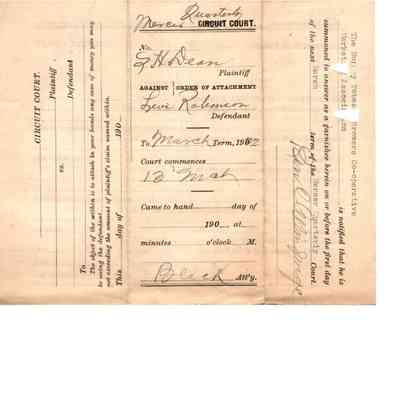 CIRCUIT COURT.
Plaintiff
vs.
Defendant
To
The object of the within is to attach in your hands any case of money you may
be owing the defendant
not exceeding the amount of plaintiff's claim named within.
This day of 190
Mercer Quarterly
CIRCUIT COURT.
No.
Dean
Plaintiff
AGAINST ORDER OF ATTACHMENT
Robinson
Defendant
To March Term, 190
Court commences
12 Mch
Came to hand day of
190 at
minutes o'clock M.
Black Att'y.
The
Co-operative
is notified that he is
summoned to answer as a garnishee herein on or before the first day
of the next March term of the Mercer Quarterly Court.